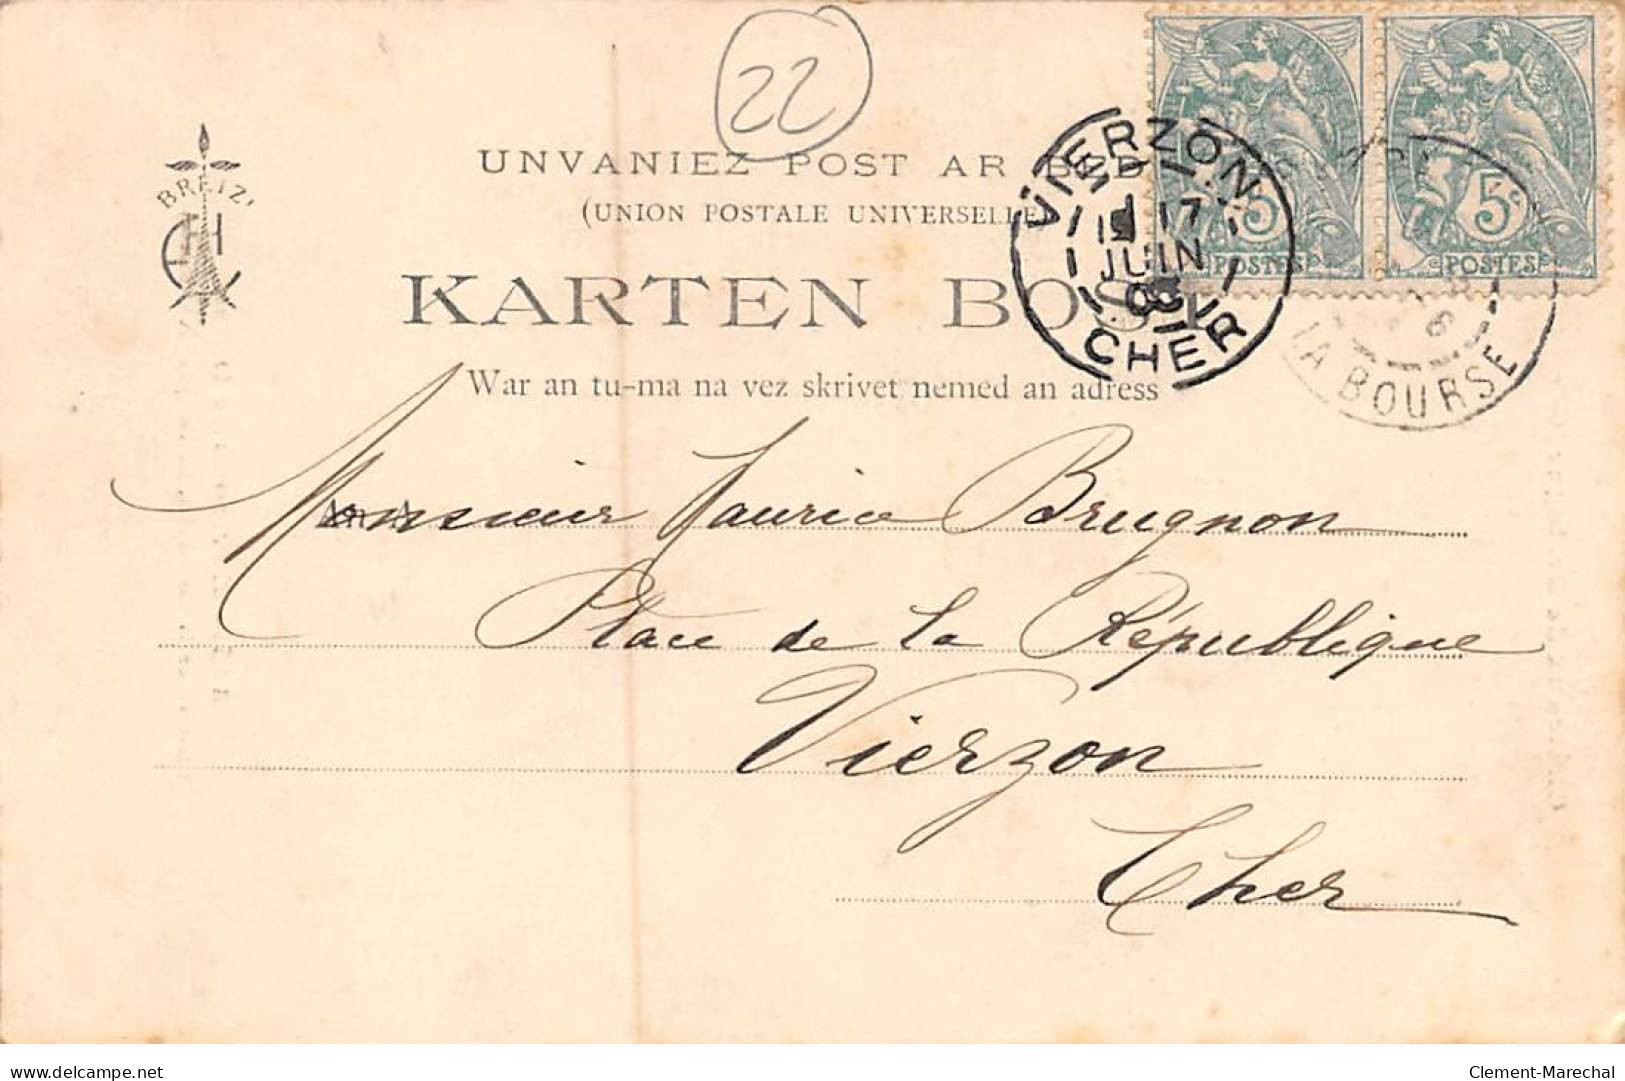 22
BREIZ'
UNVANIEZ POST AR BED
(UNION POSTALE UNIVERSELLE)
KARTEN BOST
War an tu-ma na vez skrivet nemed an adress
VIERZON
17
JUIN
03
CHER
5
POSTES
5c
POSTES
LA BOURSE
Monsieur Maurice Brugnon
Place de la République
Vierzon
Cher
delcampe.net
Clement-Marechal